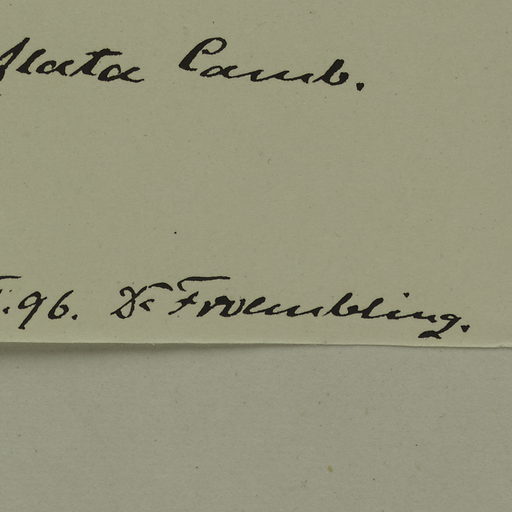 flata Camb.
.96. Dr Froembling.